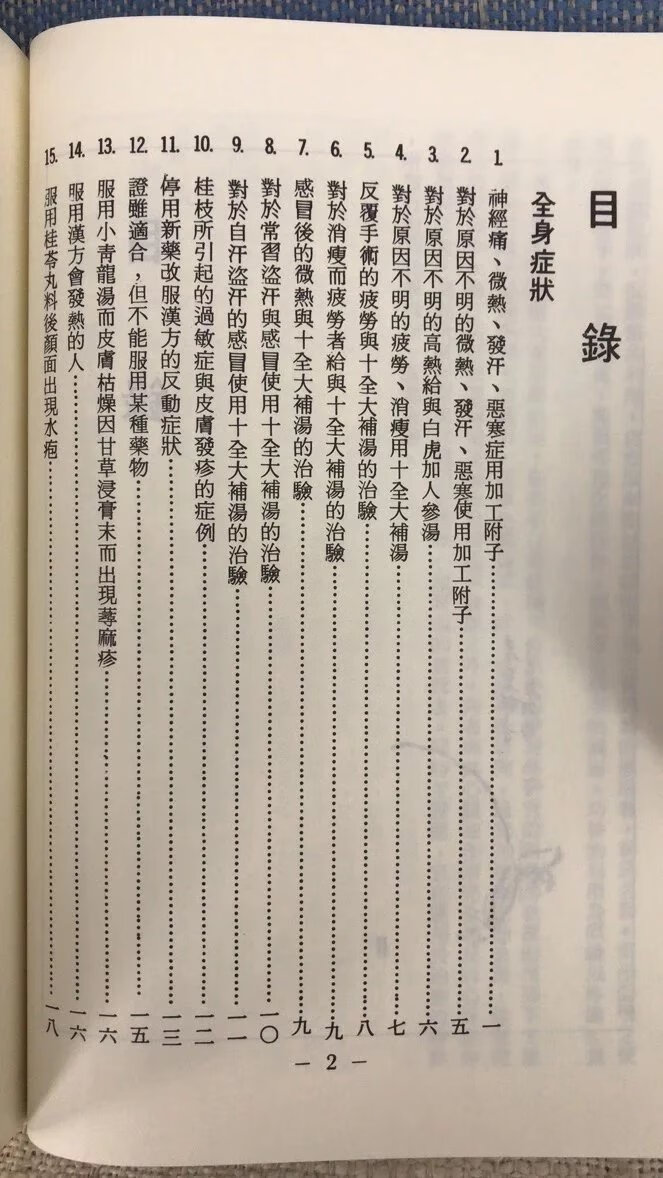 目錄
全身症狀
1. 神經痛、微熱、發汗、惡寒症用加工附子……一
2. 對於原因不明的微熱、發汗、惡寒使用加工附子……五
3. 對於原因不明的高熱給與白虎加人參湯……六
4. 對於原因不明的疲勞、消瘦用十全大補湯……七
5. 反覆手術的疲勞與十全大補湯的治驗……八
6. 對於消瘦而疲勞者給與十全大補湯的治驗……九
7. 感冒後的微熱與十全大補湯的治驗……九
8. 對於常習盜汗與感冒使用十全大補湯的治驗……一〇
9. 對於自汗盜汗的感冒使用十全大補湯的治驗……一一
10. 桂枝所引起的過敏症與皮膚發疹的症例……一二
11. 停用新藥改服漢方的反動症狀……一三
12. 證雖適合，但不能服用某種藥物……一五
13. 服用小靑龍湯而皮膚枯燥因甘草浸膏末而出現蕁麻疹……一六
14. 服用漢方會發熱的人……一六
15. 服用桂苓丸料後顏面出現水疱……一八
— 2 —